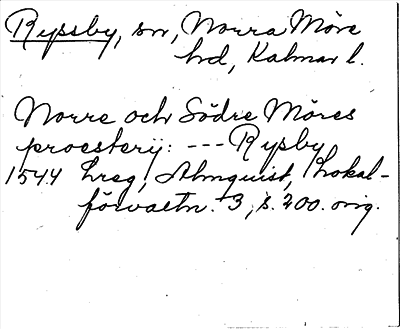 Ryssby, sn, Norra Möre
hd, Kalmar l.
Norre och Södre Möres
proesterij: --- Rysby
1544 hreg, Almquist, Lokal-
förvaltn. 3, s. 200. orig.